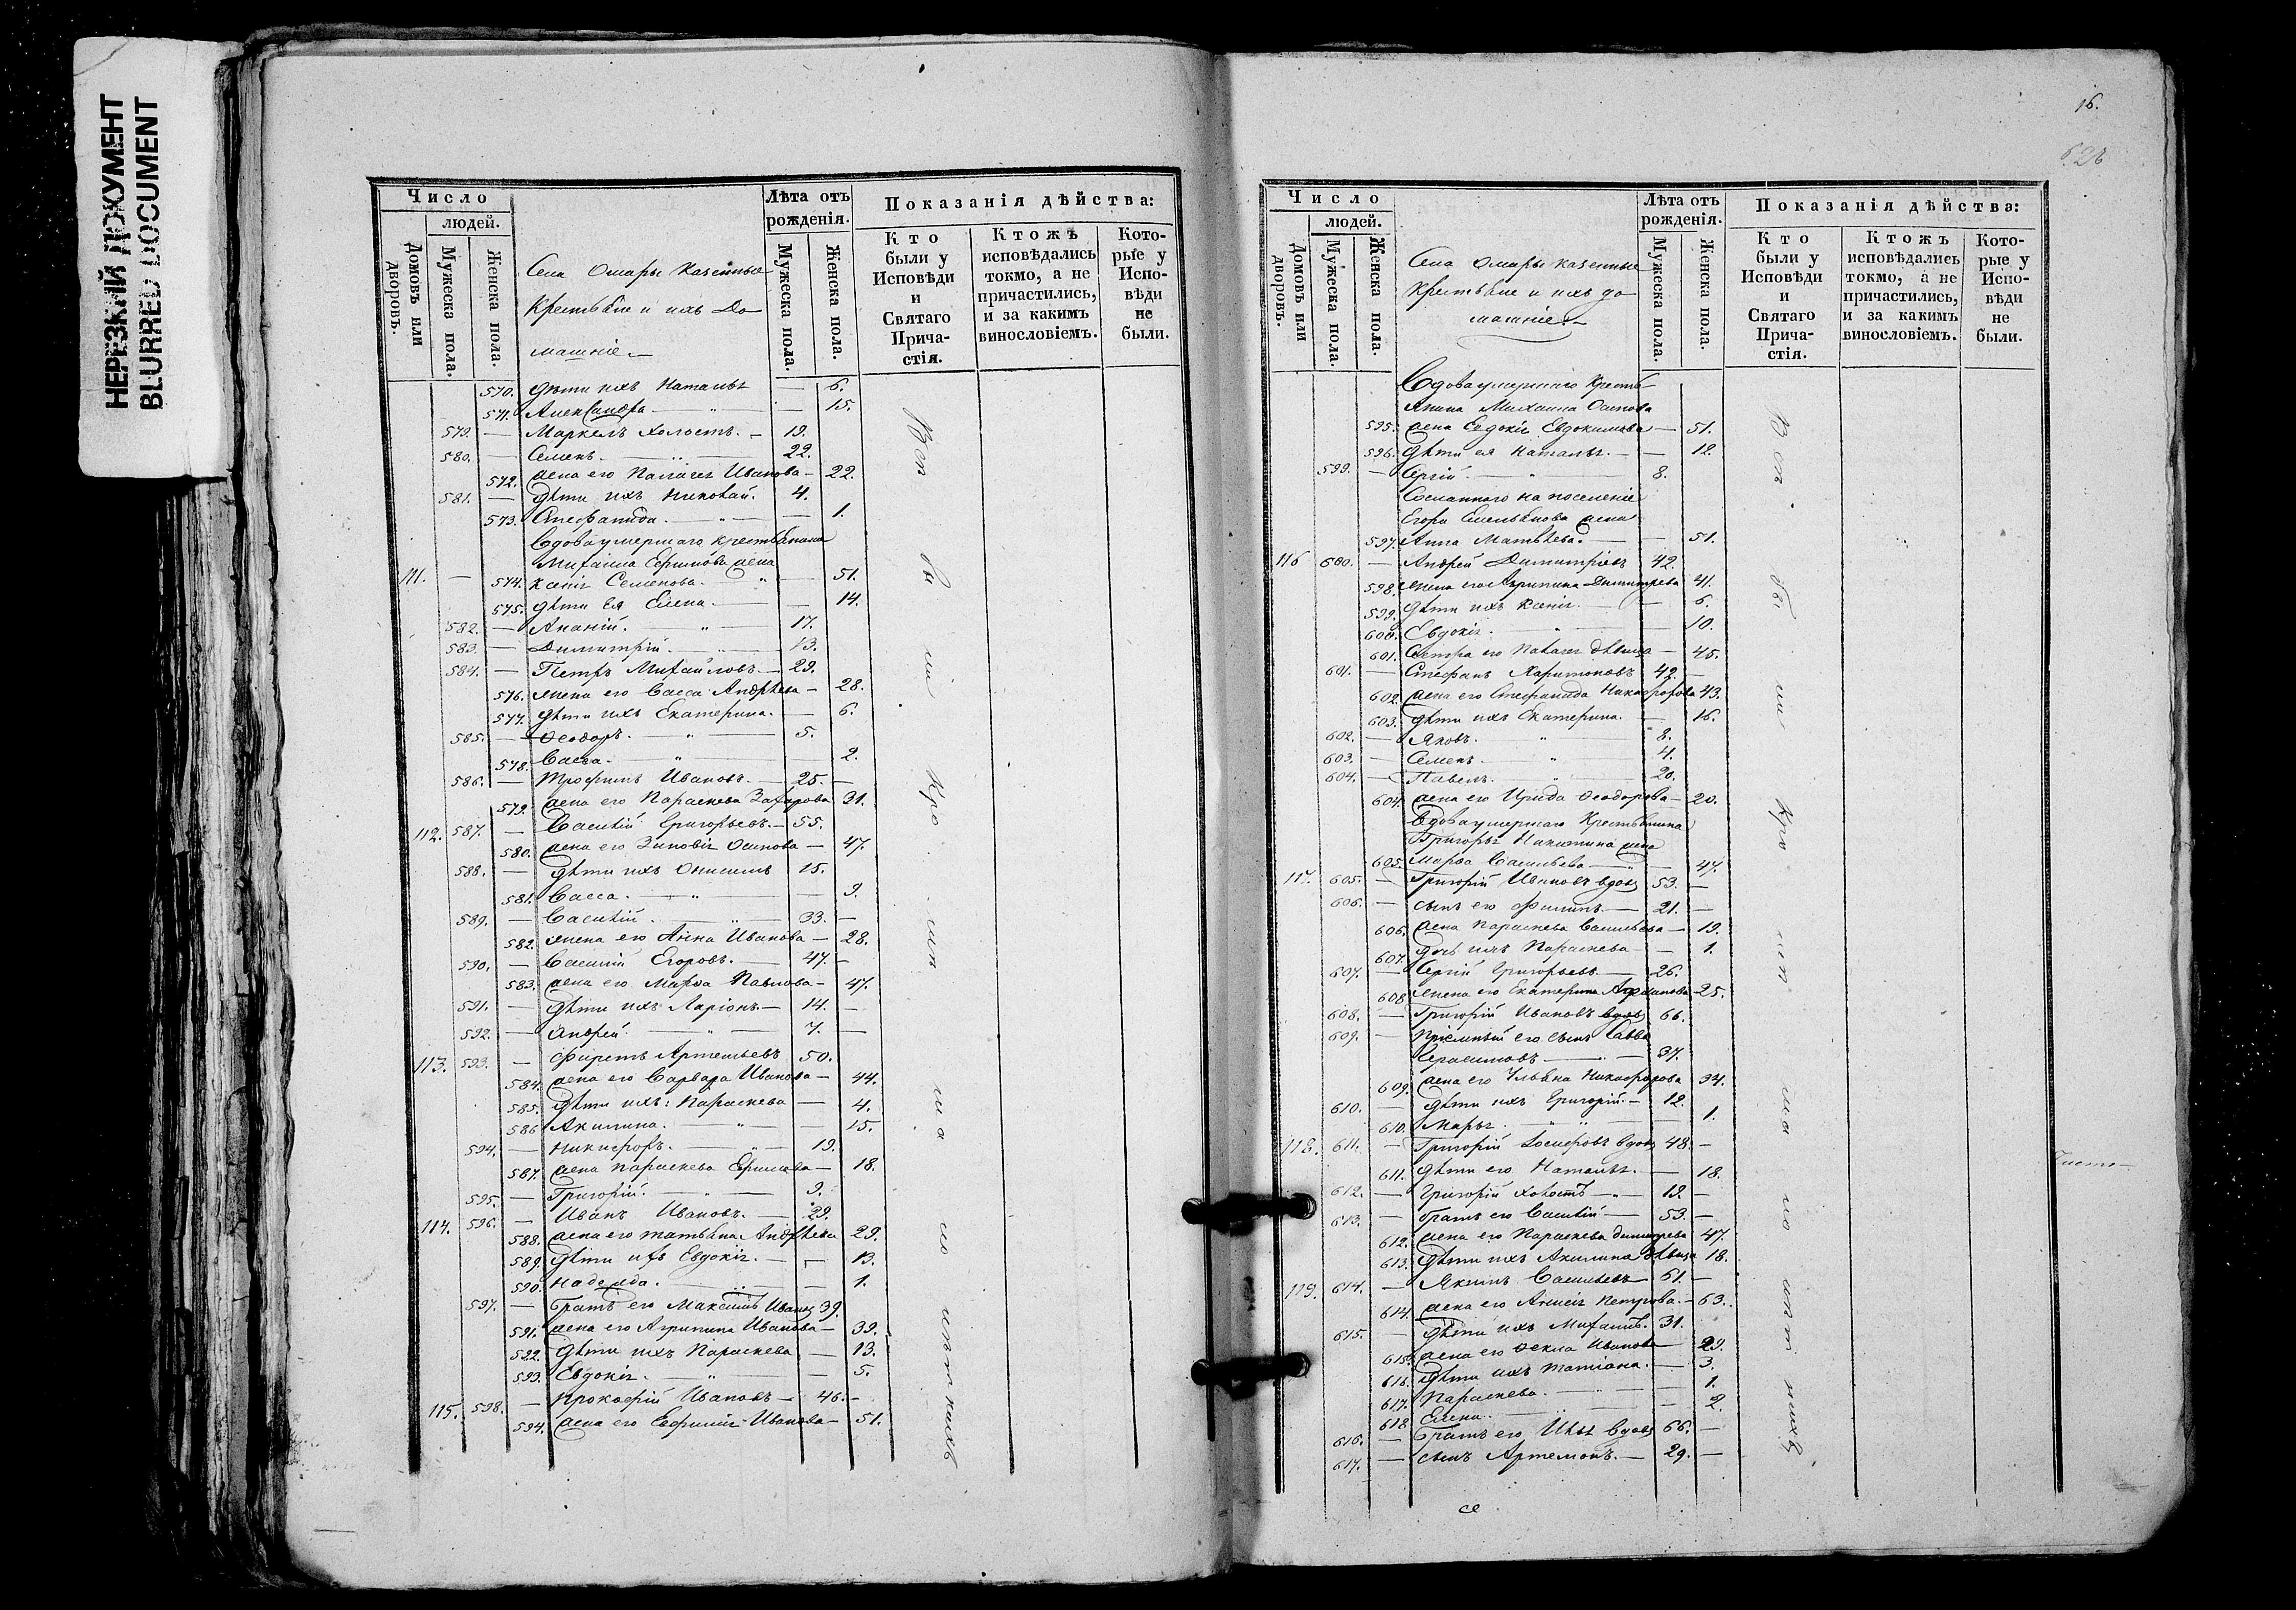 НЕРЕЗКИЙ ДОКУМЕНТ
BLURRED DOCUMENT
Число
людей.
Домовъ или дворовъ.
Мужеска пола.
Женска пола.
Села Омары казенные
Крестьяне и ихъ до
машніе
Лѣта отъ рожденія.
Мужеска пола.
Женска пола.
Показанія дѣйства:
Кто были у Исповѣди и Святаго Причастія.
Ктожъ исповѣдались токмо, а не причастились, и за какимъ винословіемъ.
Которые у Исповѣди не были.
570. дѣти ихъ Наталья — 6.
571. Александра — 15.
579. — Маркелъ холостъ. — 19.
580. — Семенъ. — 22.
572. жена его Палагея Иванова — 22.
581. — дѣти ихъ Николай. 4.
573. Стефанида. — 1.
Вдова умершаго крестьянина
Михаила Ефимова жена
111. — 574. Ксенія Семенова. — 51.
575. дѣти ея Елена. — 14.
582. — Ананій. — 17.
583. — Димитрій. 13.
584. — Петръ Михайловъ. — 29.
576. жена его Васса Андрѣева — 28.
577. дѣти ихъ Екатерина. — 6.
585. — Ѳеодоръ. — 5.
578. Васса. 2.
586. — Трофимъ Ивановъ. — 25. —
579. жена его Параскева Захарова 31.
112. 587. — Василій Григорьевъ. — 55.
580. жена его Зиновія Осипова — 47.
588. — дѣти ихъ Онисимъ 15.
581. Васса. — 9.
589. — Василій. — 33. —
582. жена его Анна Иванова — 28.
590. — Василій Егоровъ. — 47. —
583. жена его Марѳа Павлова — 47.
591. — дѣти ихъ Ларіонъ. — 14. —
592. — Андрей. — 7. —
113. 593. — Фирстъ Артемьевъ 50.
584. жена его Варвара Иванова — 44.
585. дѣти ихъ: Параскева — 4.
586 Акилина. — 15.
594. — Никифоръ. — 19.
587. жена Параскева Ефимова — 18.
595. — Григорій. — 9.
114. 596. — Иванъ Ивановъ. — 29.
588. жена его Татьяна Андрѣева 29.
589. дѣти ихъ Евдокія. — 13.
590. Надежда. — 1.
597. — братъ его Максимъ Ивановъ 39.
591. жена его Агрипина Иванова — 39.
592. дѣти ихъ Параскева — 13.
593. Евдокія. — 5.
115. 598. — Прокофій Ивановъ — 46. —
594. жена его Евфимія Иванова — 51.
16.
Число
людей.
Домовъ или дворовъ.
Мужеска пола.
Женска пола.
Села Омары казенные
Крестьяне и ихъ до
машніе
Лѣта отъ рожденія.
Мужеска пола.
Женска пола.
Показанія дѣйства:
Кто были у Исповѣди и Святаго Причастія.
Ктожъ исповѣдались токмо, а не причастились, и за какимъ винословіемъ.
Которые у Исповѣди не были.
Вдова умершаго кресть
янина Михаила Осипова
595. жена Евдокія Евдокимова — 51.
596. дѣти ея Наталья. — 12.
599. — Сергій. — 8.
Сосланнаго на поселеніе
Егора Емельянова жена
597. Анна Матвѣева. — 51.
116 600. — Андрей Димитріевъ 42.
598. жена его Агрипина Димитрева 41.
599. дѣти ихъ Ксенія. — 6.
600. Евдокія. — 10.
601. Сестра его Палагея дѣвица — 45.
601. — Стефанъ Харитоновъ 42. —
602. жена его Стефанида Никифорова 43.
603. дѣти ихъ Екатерина. — 16.
602. — Яковъ. 8.
603. — Семенъ. 4.
604. — Павелъ. 20.
604. жена его Ираида Ѳеодорова — 20.
Вдова умершаго Крестьянина
Григорья Никитина жена
605. Марѳа Васильева — 47.
117. 605. — Григорій Ивановъ вдовъ 53. —
606. — сынъ его Филипъ. — 21. —
606. жена Параскева Васильева — 19.
607. дочь ихъ Параскева — 1.
607. — Сергій Григорьевъ. — 26.
608. жена его Екатерина 25.
608. — Григорій Ивановъ вдовъ 66.
609. — Пріемный его сынъ Савва
Герасимовъ — 37.
609. жена его Ульяна Никифорова 34.
610. — дѣти ихъ Григорій. — 12.
610. Марья. — 1.
118. 611. — Григорій вдовъ 48. —
611. дѣти его Наталья. — 18.
612. — Григорій холостъ — 19. —
613. — братъ его Василій — 53. —
612. жена его Параскева Димитрева 47.
613. дѣти ихъ Акилина дѣвица 18.
119. 614. — Якимъ Васильевъ 61. —
614. жена его Анисія Петрова. — 63.
615. — дѣти ихъ Михаилъ. 31.
615. жена его Ѳекла Иванова 29.
616. дѣти ихъ Татіана. — 3.
617. Параскева. — 1.
618. Елена. — 2.
616. — братъ его Илья вдовъ 66. —
617. — сынъ Артемонъ. — 29. —